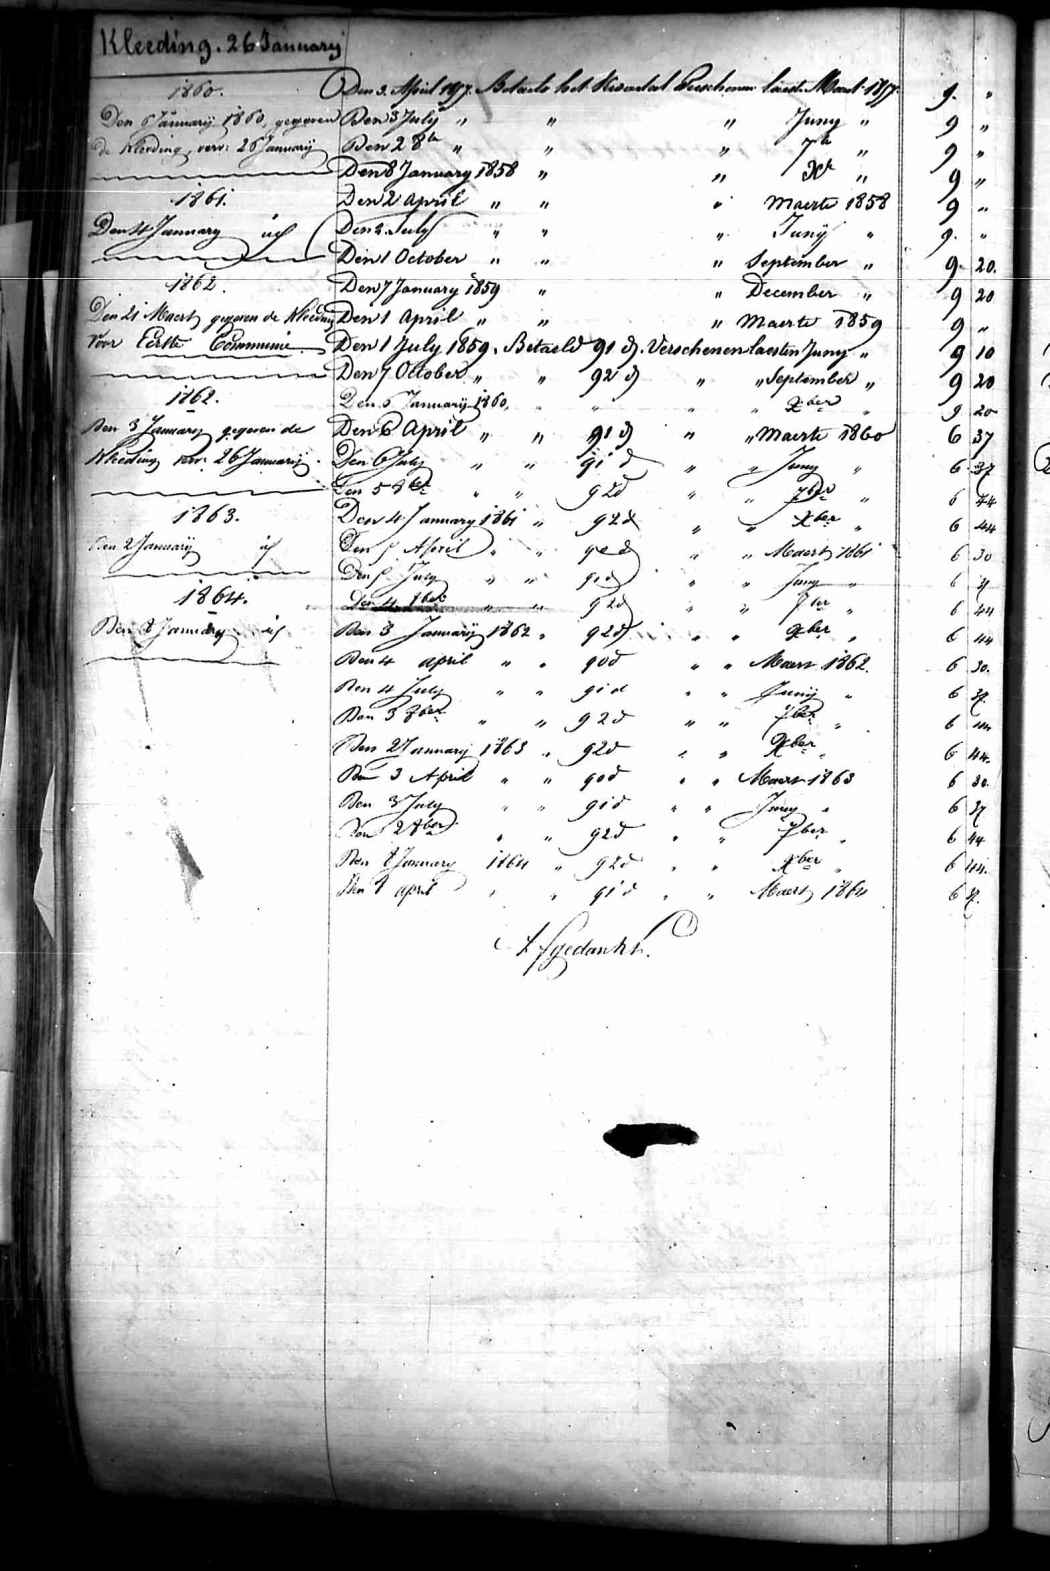 Kleeding. 26 January
1860.
Den 6 Januarij 1860, gegeven
de kleeding, verv: 26 Januarij
1861.
Den 4 January id
1862.
Den 21 Maert gegeven de kleeding
voor Eerste Communie.
1862.
Den 3 January gegeven de
kleeding verv: 26 Januarij.
1863.
Den 2 Januarij id
1864.
Den 8 January id
Den 3. April 1857. Betaelt het Kwartal Verschenen laest Maert 1857. 9. "
Den 3 July " " " Juny " 9 "
Den 2 8br " " " 7br " 9 "
Den 8 January 1858 " " Xbr " 9 "
Den 2 April " " " Maerte 1858 9 "
Den 2 July " " " Junij " 9. "
Den 1 October " " " September " 9. 20.
Den 7 January 1859 " " December " 9 20
Den 1 April " " " Maerte 1859 9 "
Den 1 July 1859. Betaeld 91 d. Verschenen laesten Juny " 9 10
Den 7 October " " 92 d " " September " 9 20
Den 6 Januarij 1860, " " " " Xber " 9 20
Den 6 April " " 91 d " " Maerte 1860 6 37
Den 6 July " " 91 d " " Juny " 6 37
Den 5 8ber " " 92d " " 7ber " 6 44
Den 4 January 1861 " 92d " " Xber " 6 44
Den 5 April " " 90d " " Maert 1861 6 30
Den 5 July " " 91d " " Juny " 6 37
Den 4 8ber " " 92d " " 7ber " 6 44
Den 3 Januarij 1862 " 92d " " Xber " 6 44
Den 4 april " " 90d " " Maert 1862. 6 30.
Den 4 July " " 91d " " Junij " 6 37.
Den 3 8ber " " 92d " " 7ber " 6 44
Den 2 January 1863 " 92d " " Xber " 6 44.
Den 3 April " " 90d " " Maert 1863 6 30.
Den 3 July " " 91d " " Juny " 6 37
Den 2 8ber " " 92d " " 7ber " 6 44
Den 8 January 1864 " 92d " " Xber " 6 44.
Den 8 april " " 91d " " Maert 1864 6 37.
Afgedankt.